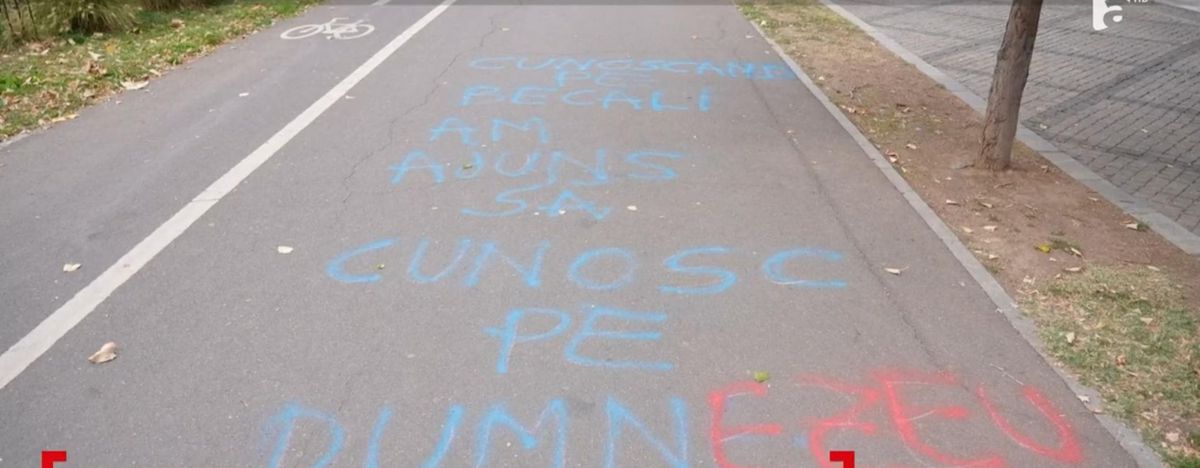 CUNOSCAND
PE
BECALI
AM
AJUNS
SĂ
CUNOSC
PE
DUMNEZEU